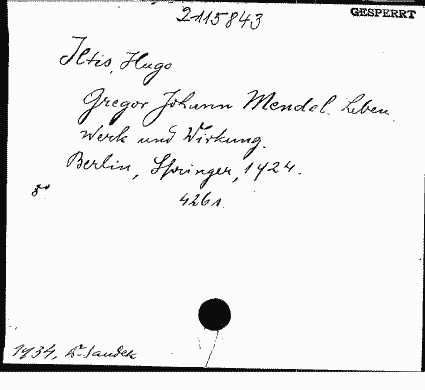 2115843
GESPERRT
Iltis, Hugo
Gregor Johann Mendel. Leben
Werk und Wirkung.
Berlin, Springer, 1924.
8°
426 s.
1934, Dr. Sandek